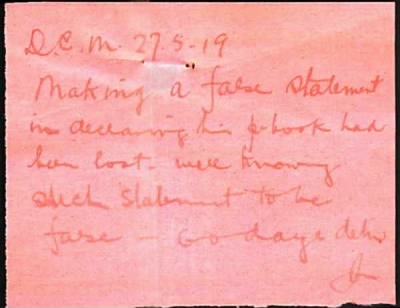 D.C.M. 27.5-19
Making a false statement
in declaring his p-book had
been lost - well knowing
such statement to be
false - 60 days detn